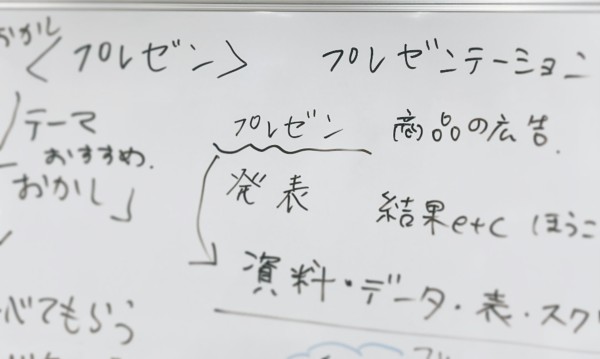 おかし
〈プレゼン〉 プレゼンテーション
テーマ
おすすめ
おかし」
プレゼン 商品の広告
発表 結果etc ほうこ
資料・データ・表・スク
べてもらう